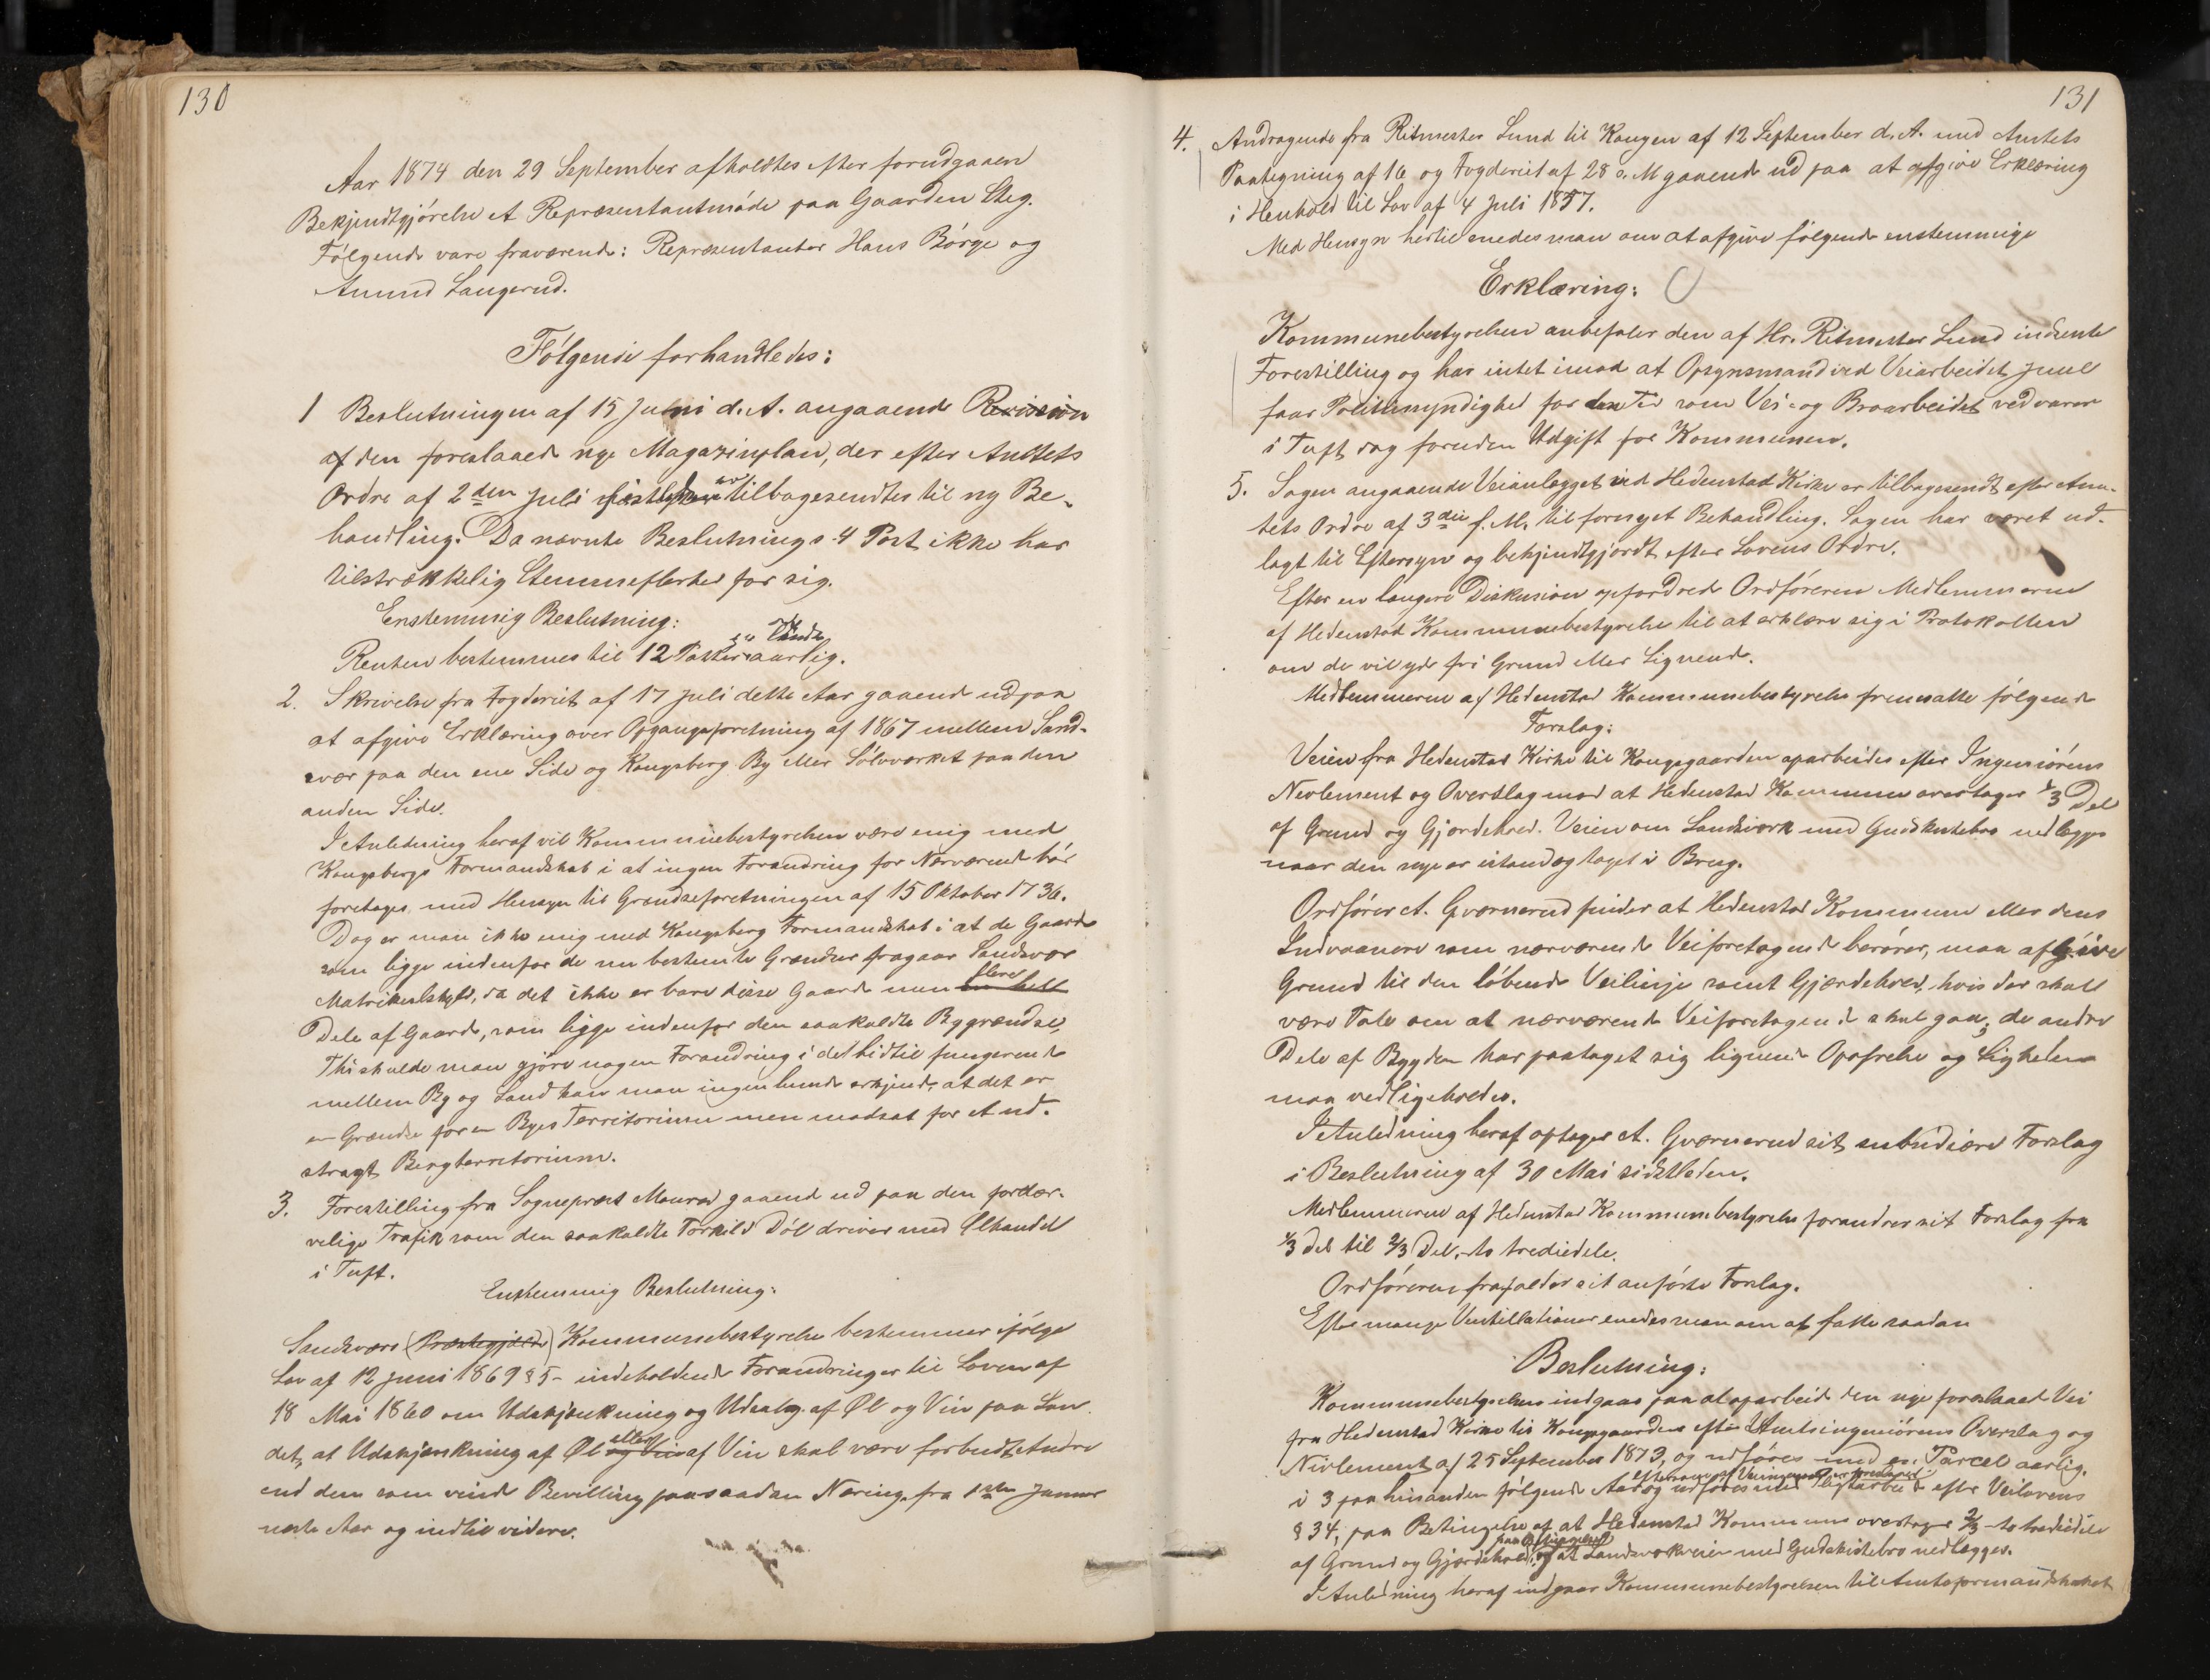 130
Aar 1874 den 29 September afholdtes efter forudgaaen
Bekjendtgjørelse et Repræsentantmøde paa Gaarden Steg.
Følgende vare fraværende: Repræsentanter Hans Børge og
Amund Langerud.
Følgende forhandledes:
1 Beslutningen af 15 Juni d. A. angaaende Revision
af den foreslaaede nye Magazinplan, der efter Amtets
Ordre af 2den Juli sidstleden er tilbagesendtes til ny Be-
handling. Da nævnte Beslutnings 4 Post ikke har
tilstrækkelig Stemmeflerhed for sig.
Enstemmig Beslutning:
Renten bestemmes til 12 Potter pr Tønde aarlig.
2. Skrivelse fra Fogderiet af 17 Juli dette Aar gaaende ud paa
at afgive Erklæring over Opgangsforretning af 1867 mellem Sand-
svær paa den ene Side og Kongsberg By eller Sølvværket paa den
anden Side.
I Anledning heraf vil Kommunebestyrelsen være enig med
Kongsbergs Formandskab i at ingen Forandring for Nærværende bør
foretages med Hensyn til Grændseforretningen af 15 Oktober 1736.
Dog er man ikke enig med Kongsberg Formandskab i at de Gaarde
som ligge indenfor de nu bestemte Grændser fragaar Sandsvær
Matrikulskyld, da det ikke er bare disse Gaarde men en hell flere
Dele af Gaarde, som ligge indenfor den saakaldte Bygrændse,
Thi skulde man gjøre nogen Forandring i det hidtil fungerende
mellem By og Land kan man ingenlunde erkjende, at det er
en Grændse for en Byes Territorium men modsat for et ud-
stragt Bergterritorium.
3. Forestilling fra Sogneprest Monrad gaaende ud paa den fordær-
velige Trafik som den saakaldte Torkild Døl driver med Ølhandel
i Tuft.
Enstemmig Beslutning:
Sandsværs (Præstegjælds) Kommunebestyrelse bestemmer ifølge
Lov af 12 Juni 1869 § 5 - indeholdende Forandringer til Loven af
18 Mai 1860 om Udskjænkning og Udsalg af Øl og Vin paa Lan
det, at Udskjænkning af Øl og Vin eller af Vin skal være forbudt Andre
end dem som vinde Bevilling paa saadan Næring fra 1ste Januar
næste Aar og indtil videre.
131
4. Andragende fra Ritmester Lund til Kongen af 12 September d. A. med Amtets
Paategning af 16 og Fogderiet af 28 s. M gaaende ud paa at afgive Erklæring
i Henhold til Lov af 4 Juli 1857.
Med Hensyn hertil enedes man om at afgive følgende enstemmige
Erklæring:
Kommunebestyrelsen anbefaler den af Hr. Ritmester Lund indsente
Forestilling og har intet imod at Opsynsmand ved Veiarbeidet Juul
faar Politimyndighed for den Tid som Vei- og Broarbeidet vedvarer
i Tuft dog foruden Udgift for Kommunen.
5. Sagen angaaende Veianlægget ved Hedenstad Kirke er tilbagesendt efter Am-
tets Ordre af 3die f. M. til fornyet Behandling. Sagen har været ud-
lagt til Eftersyn og bekjendtgjordt efter Lovens Ordre.
Efter en længere Diskusion opfordred Ordføreren Medlemmerne
af Hedenstad Kommunebestyrelse til at erklære sig i Protokollen
om de vil yde fri Grund eller Lignende.
Medlemmerne af Hedenstad Kommunebestyrelse fremsatte følgende
Forslag:
Veien fra Hedenstad Kirke til Kongsgaarden oparbeides efter Ingeniørens
Nivlement og Overslag mod at Hedenstad Kommune overtager 1/3 Del
af Grund og Gjordehold. Veien om Landsværk med Gudskistebro nedlægges
naar den nye er istand og taget i Brug.
Ordfører A. Gværnerud finder at Hedenstad Kommune eller dens
Indvaanere som nærværende Veiforetagende berører, maa afgive
Grund til den løbende Veilinje samt Gjærdehold, hvis der skal
være Tale om at nærværende Veiforetagende skal gaa; de andre
Dele af Bygden har paataget sig lignende Opofrelse og Ligheden
maa vedligeholdes.
I Anledning heraf optager A. Gværnerud sit subsidiære Forslag
i Beslutning af 30 Mai sidstleden.
Medlemmerne af Hedenstad Kommunebestyrelse forandrer sit Forslag fra
1/3 Del til 2/3 Del. to trediedele.
Ordføreren frafalder sit anførte Forslag.
Efter mange Ventillationer enedes man om at fatte saadan
Beslutning:
Kommunebestyrelsen indgaar paa at oparbeide den nye foreslaaed Vei
fra Hedenstad Kirke til Kongsgaarden efter Amtsingeniørens Overslag og
Nivlement af 25 September 1873, og udføres med en Parcel aarlig.
i 3 paa hinanden følgende Aar og udføres med Pligtarbeide efter Veilovens
§ 34, paa Betingelse af at Hedenstad Kommune overtager 2/3 - to trediedele
af Grund og Gjærdehold, og paa Betingelse at Landsværkveien med Gudskistebro nedlægges.
I Anledning heraf indgaar Kommunebestyrelsen til Amtsformandskabet